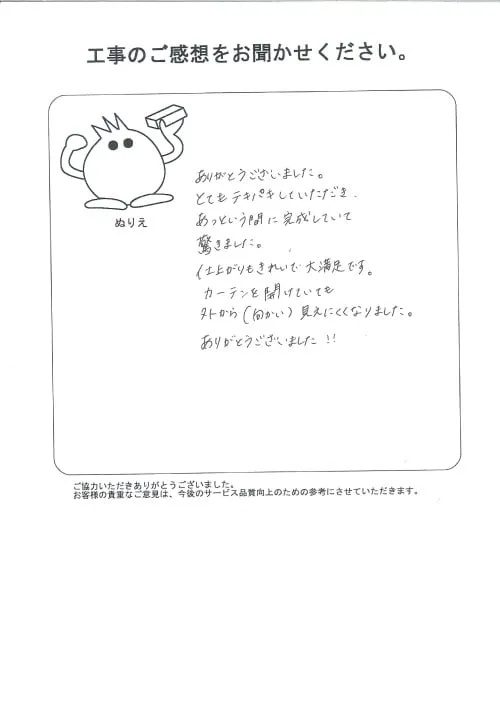 工事のご感想をお聞かせください。
ぬりえ
ありがとうございました。
とてもテキパキしていただき、
あっという間に完成していて
驚きました。
仕上がりもきれいで大満足です。
カーテンを開けていても
外から(向かい)見えにくくなりました。
ありがとうございました!!
ご協力いただきありがとうございました。
お客様の貴重なご意見は、今後のサービス品質向上のための参考にさせていただきます。